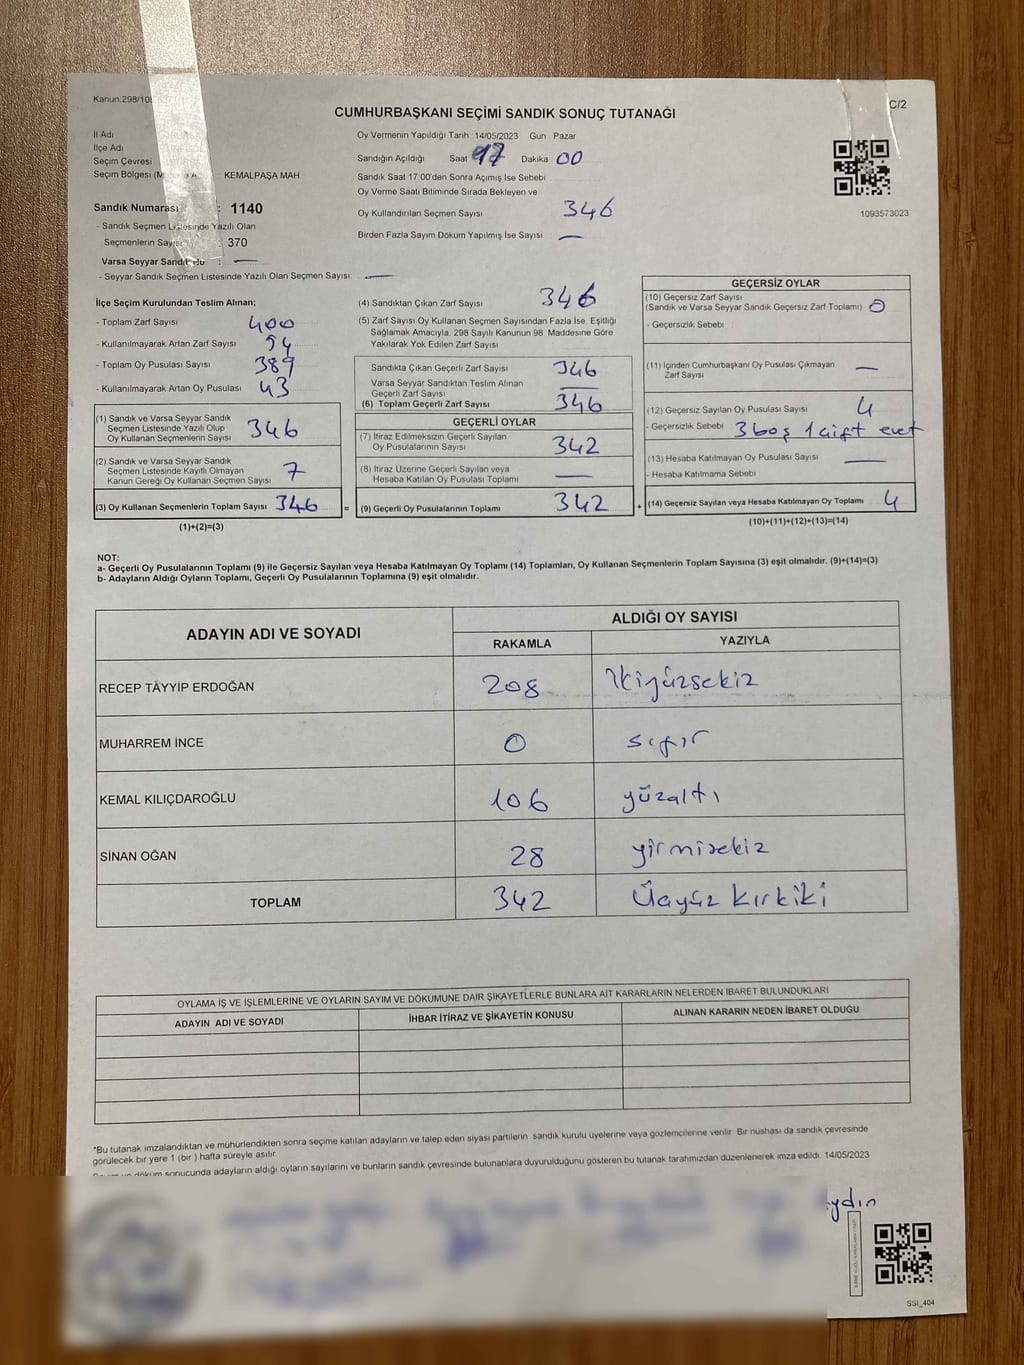 Kanun:298/10
C/2
CUMHURBAŞKANI SEÇİMİ SANDIK SONUÇ TUTANAĞI
İl Adı
İlçe Adı
Seçim Çevresi
Seçim Bölgesi KEMALPAŞA MAH
Sandık Numarası : 1140
- Sandık Seçmen Listesinde Yazılı Olan
Seçmenlerin Sayısı 370
Varsa Seyyar Sandık No : —
- Seyyar Sandık Seçmen Listesinde Yazılı Olan Seçmen Sayısı: —
Oy Vermenin Yapıldığı Tarih 14/05/2023 Gün Pazar
Sandığın Açıldığı Saat 17 Dakika 00
Sandık Saat 17.00'den Sonra Açımış İse Sebebi
Oy Verme Saati Bitiminde Sırada Bekleyen ve
Oy Kullandırılan Seçmen Sayısı 346
Birden Fazla Sayım Döküm Yapılmış İse Sayısı —
1093573023
İlçe Seçim Kurulundan Teslim Alınan;
- Toplam Zarf Sayısı 400
- Kullanılmayarak Artan Zarf Sayısı 54
- Toplam Oy Pusulası Sayısı 389
- Kullanılmayarak Artan Oy Pusulası 43
(1) Sandık ve Varsa Seyyar Sandık
Seçmen Listesinde Yazılı Olup
Oy Kullanan Seçmenlerin Sayısı 346
(2) Sandık ve Varsa Seyyar Sandık
Seçmen Listesinde Kayıtlı Olmayan
Kanun Gereği Oy Kullanan Seçmen Sayısı 7
(3) Oy Kullanan Seçmenlerin Toplam Sayısı 346 =
(1)+(2)=(3)
(4) Sandıktan Çıkan Zarf Sayısı 346
(5) Zarf Sayısı Oy Kullanan Seçmen Sayısından Fazla İse, Eşitliği
Sağlamak Amacıyla, 298 Sayılı Kanunun 98. Maddesine Göre
Yakılarak Yok Edilen Zarf Sayısı
Sandıkta Çıkan Geçerli Zarf Sayısı 346
Varsa Seyyar Sandıktan Teslim Alınan
Geçerli Zarf Sayısı —
(6) Toplam Geçerli Zarf Sayısı 346
GEÇERLİ OYLAR
(7) İtiraz Edilmeksizin Geçerli Sayılan
Oy Pusulalarının Sayısı 342
(8) İtiraz Üzerine Geçerli Sayılan veya
Hesaba Katılan Oy Pusulası Toplamı —
(9) Geçerli Oy Pusulalarının Toplamı 342 +
GEÇERSİZ OYLAR
(10) Geçersiz Zarf Sayısı
(Sandık ve Varsa Seyyar Sandık Geçersiz Zarf Toplamı) 0
- Geçersizlik Sebebi
(11) İçinden Cumhurbaşkanı Oy Pusulası Çıkmayan
Zarf Sayısı —
(12) Geçersiz Sayılan Oy Pusulası Sayısı 4
- Geçersizlik Sebebi 3 boş 1 çift evet
(13) Hesaba Katılmayan Oy Pusulası Sayısı —
- Hesaba Katılmama Sebebi
(14) Geçersiz Sayılan veya Hesaba Katılmayan Oy Toplamı 4
(10)+(11)+(12)+(13)=(14)
NOT:
a- Geçerli Oy Pusulalarının Toplamı (9) ile Geçersiz Sayılan veya Hesaba Katılmayan Oy Toplamı (14) Toplamları, Oy Kullanan Seçmenlerin Toplam Sayısına (3) eşit olmalıdır. (9)+(14)=(3)
b- Adayların Aldığı Oyların Toplamı, Geçerli Oy Pusulalarının Toplamına (9) eşit olmalıdır.
ADAYIN ADI VE SOYADI
ALDIĞI OY SAYISI
RAKAMLA YAZIYLA
RECEP TAYYİP ERDOĞAN 208 İkiyüzsekiz
MUHARREM İNCE 0 sıfır
KEMAL KILIÇDAROĞLU 106 yüzaltı
SİNAN OĞAN 28 yirmisekiz
TOPLAM 342 Üçyüz kırkiki
OYLAMA İŞ VE İŞLEMLERİNE VE OYLARIN SAYIM VE DÖKÜMÜNE DAİR ŞİKAYETLERLE BUNLARA AİT KARARLARIN NELERDEN İBARET BULUNDUKLARI
ADAYIN ADI VE SOYADI İHBAR İTİRAZ VE ŞİKAYETİN KONUSU ALINAN KARARIN NEDEN İBARET OLDUĞU
*Bu tutanak imzalandıktan ve mühürlendikten sonra seçime katılan adayların ve talep eden siyasi partilerin sandık kurulu üyelerine veya gözlemcilerine verilir. Bir nüshası da sandık çevresinde
görülecek bir yere 1 (bir ) hafta süreyle asılır.
döküm sonucunda adayların aldığı oyların sayılarını ve bunların sandık çevresinde bulunanlara duyurulduğunu gösteren bu tutanak tarafımızdan düzenlenerek imza edildi. 14/05/2023
ydın
SSI_404